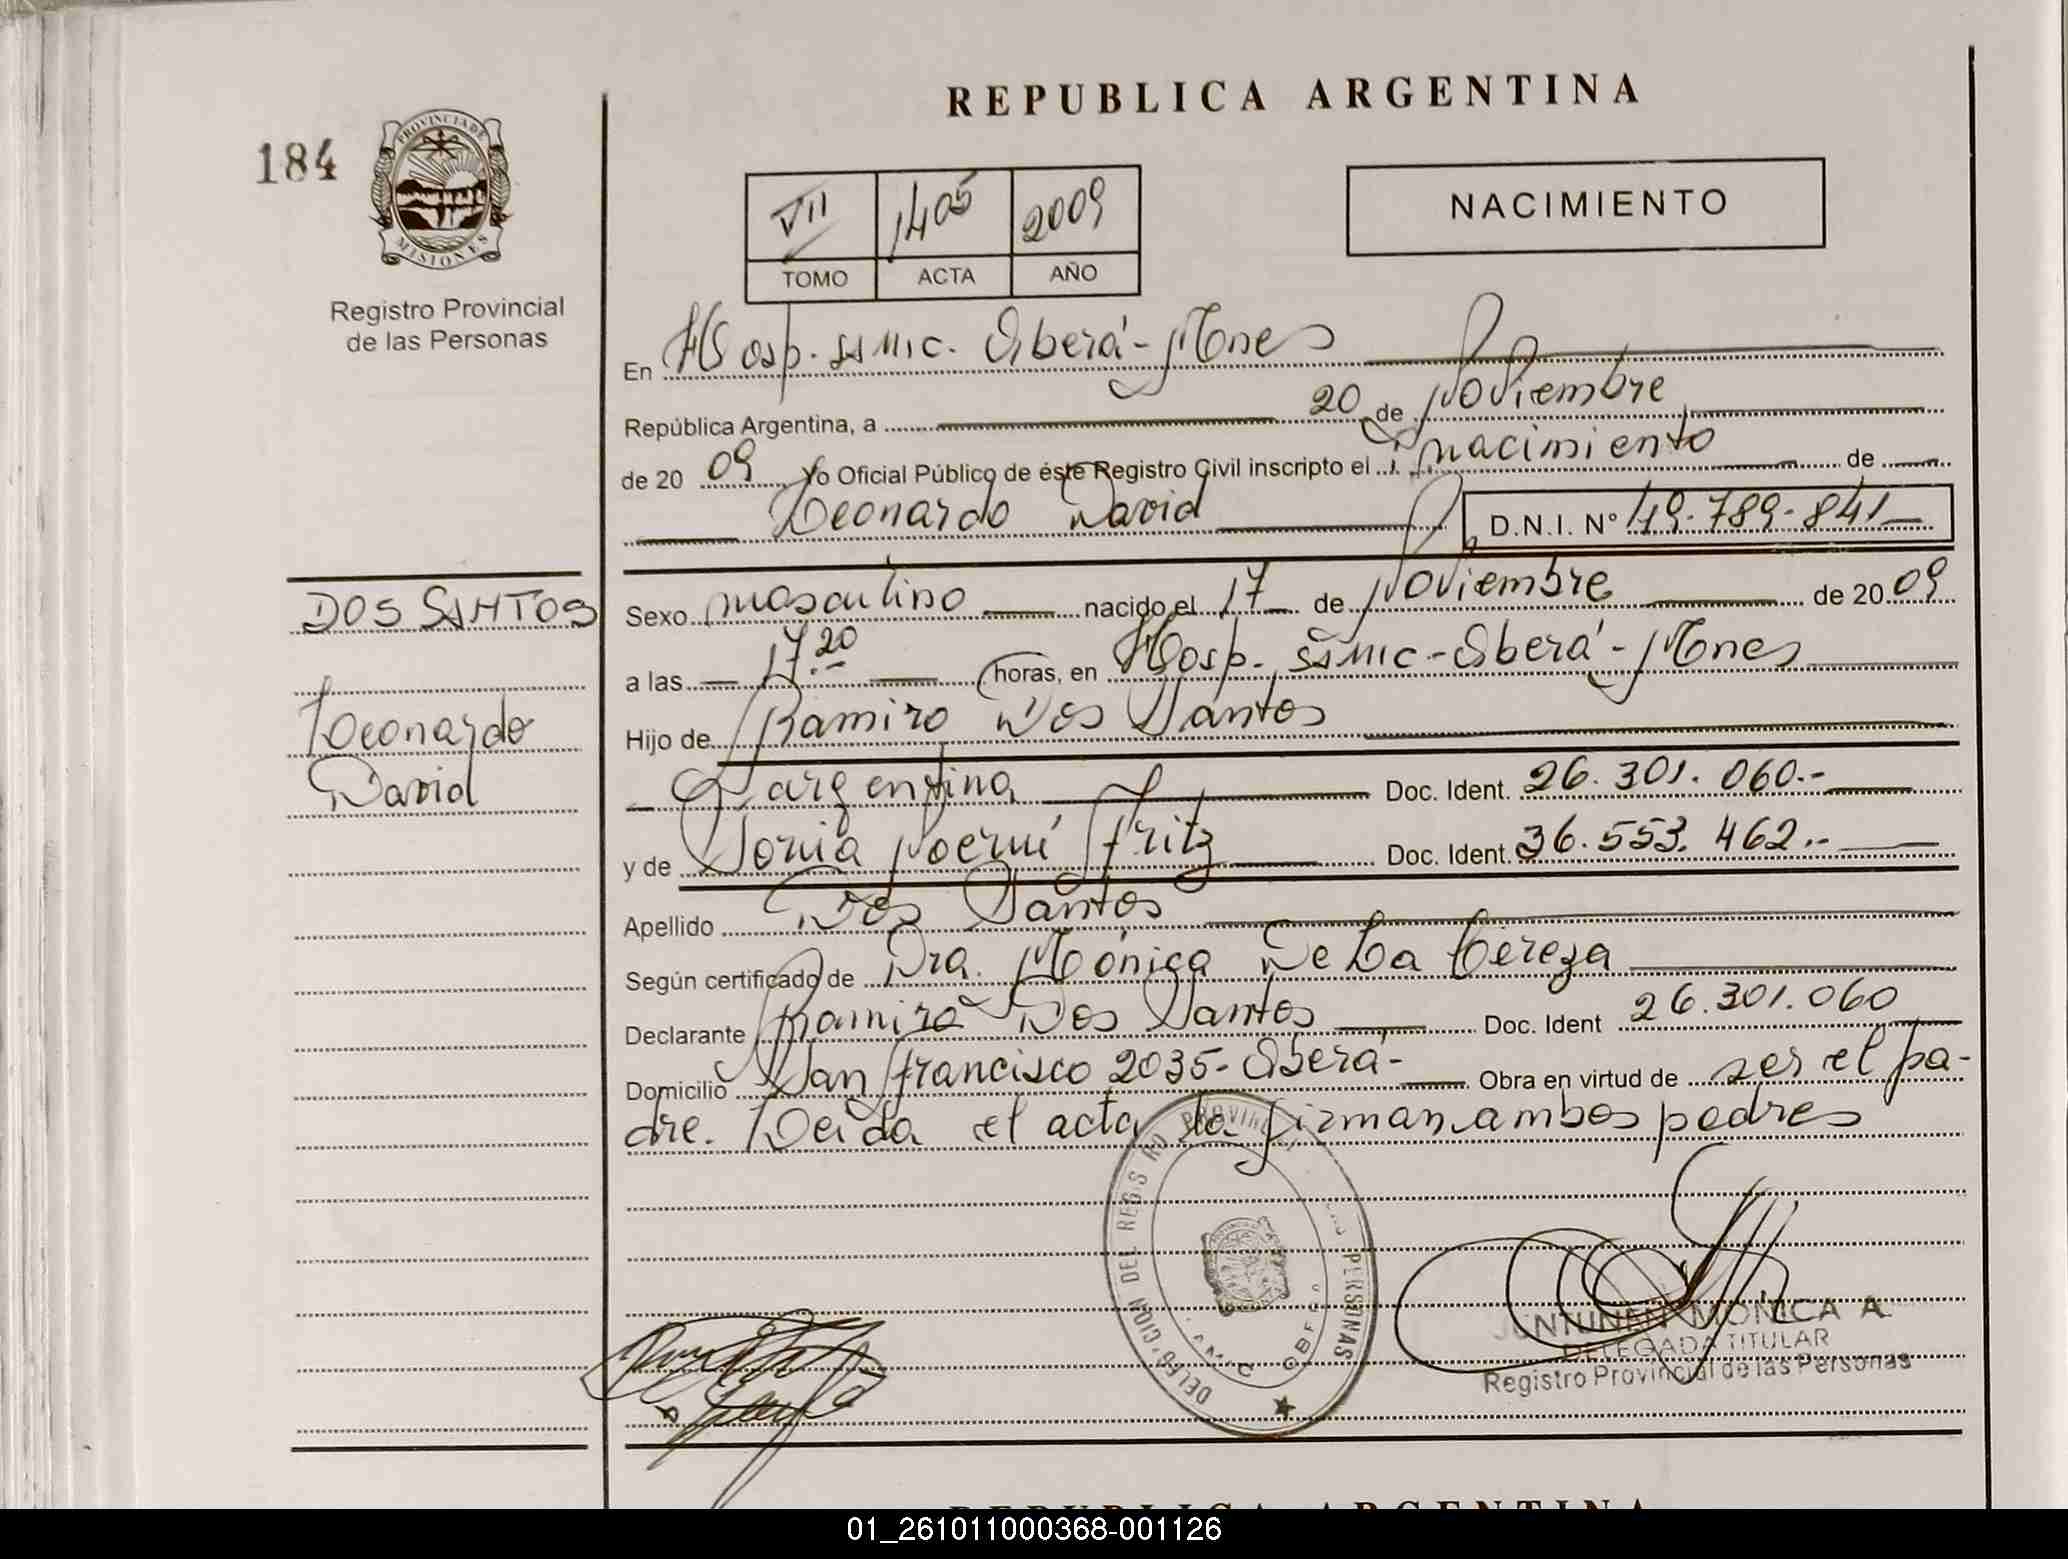 REPUBLICA ARGENTINA
184
PROVINCIA DE
MISIONES
Registro Provincial
de las Personas
VII 1405 2009
TOMO ACTA AÑO
NACIMIENTO
En Hosp. SAMIC. Oberá-Mnes
República Argentina, a 20 de Noviembre
de 20 09 Yo Oficial Público de éste Registro Civil inscripto el nacimiento de
Leonardo David D.N.I. Nº 49.789.841
DOS SANTOS
Leonardo
David
Sexo masculino nacido el 17 de Noviembre de 20 09
a las 17.20 horas, en Hosp. SAMIC-Oberá-Mnes
Hijo de Ramiro Dos Santos
argentina Doc. Ident. 26.301.060.-
y de Sonia Noemí Fritz Doc. Ident. 36.553.462.-
Apellido Dos Santos
Según certificado de Dra. Mónica De La Cereza
Declarante Ramiro Dos Santos Doc. Ident 26.301.060
Domicilio San Francisco 2035-Oberá- Obra en virtud de ser el pa-
dre. Leída el acta la firman ambos padres
DELEGACION DEL REGISTRO PROVINCIAL PERSONAS
JUNTUNEN MONICA A.
DELEGADA TITULAR
Registro Provincial de las Personas
REPUBLICA ARGENTINA
01_261011000368-001126